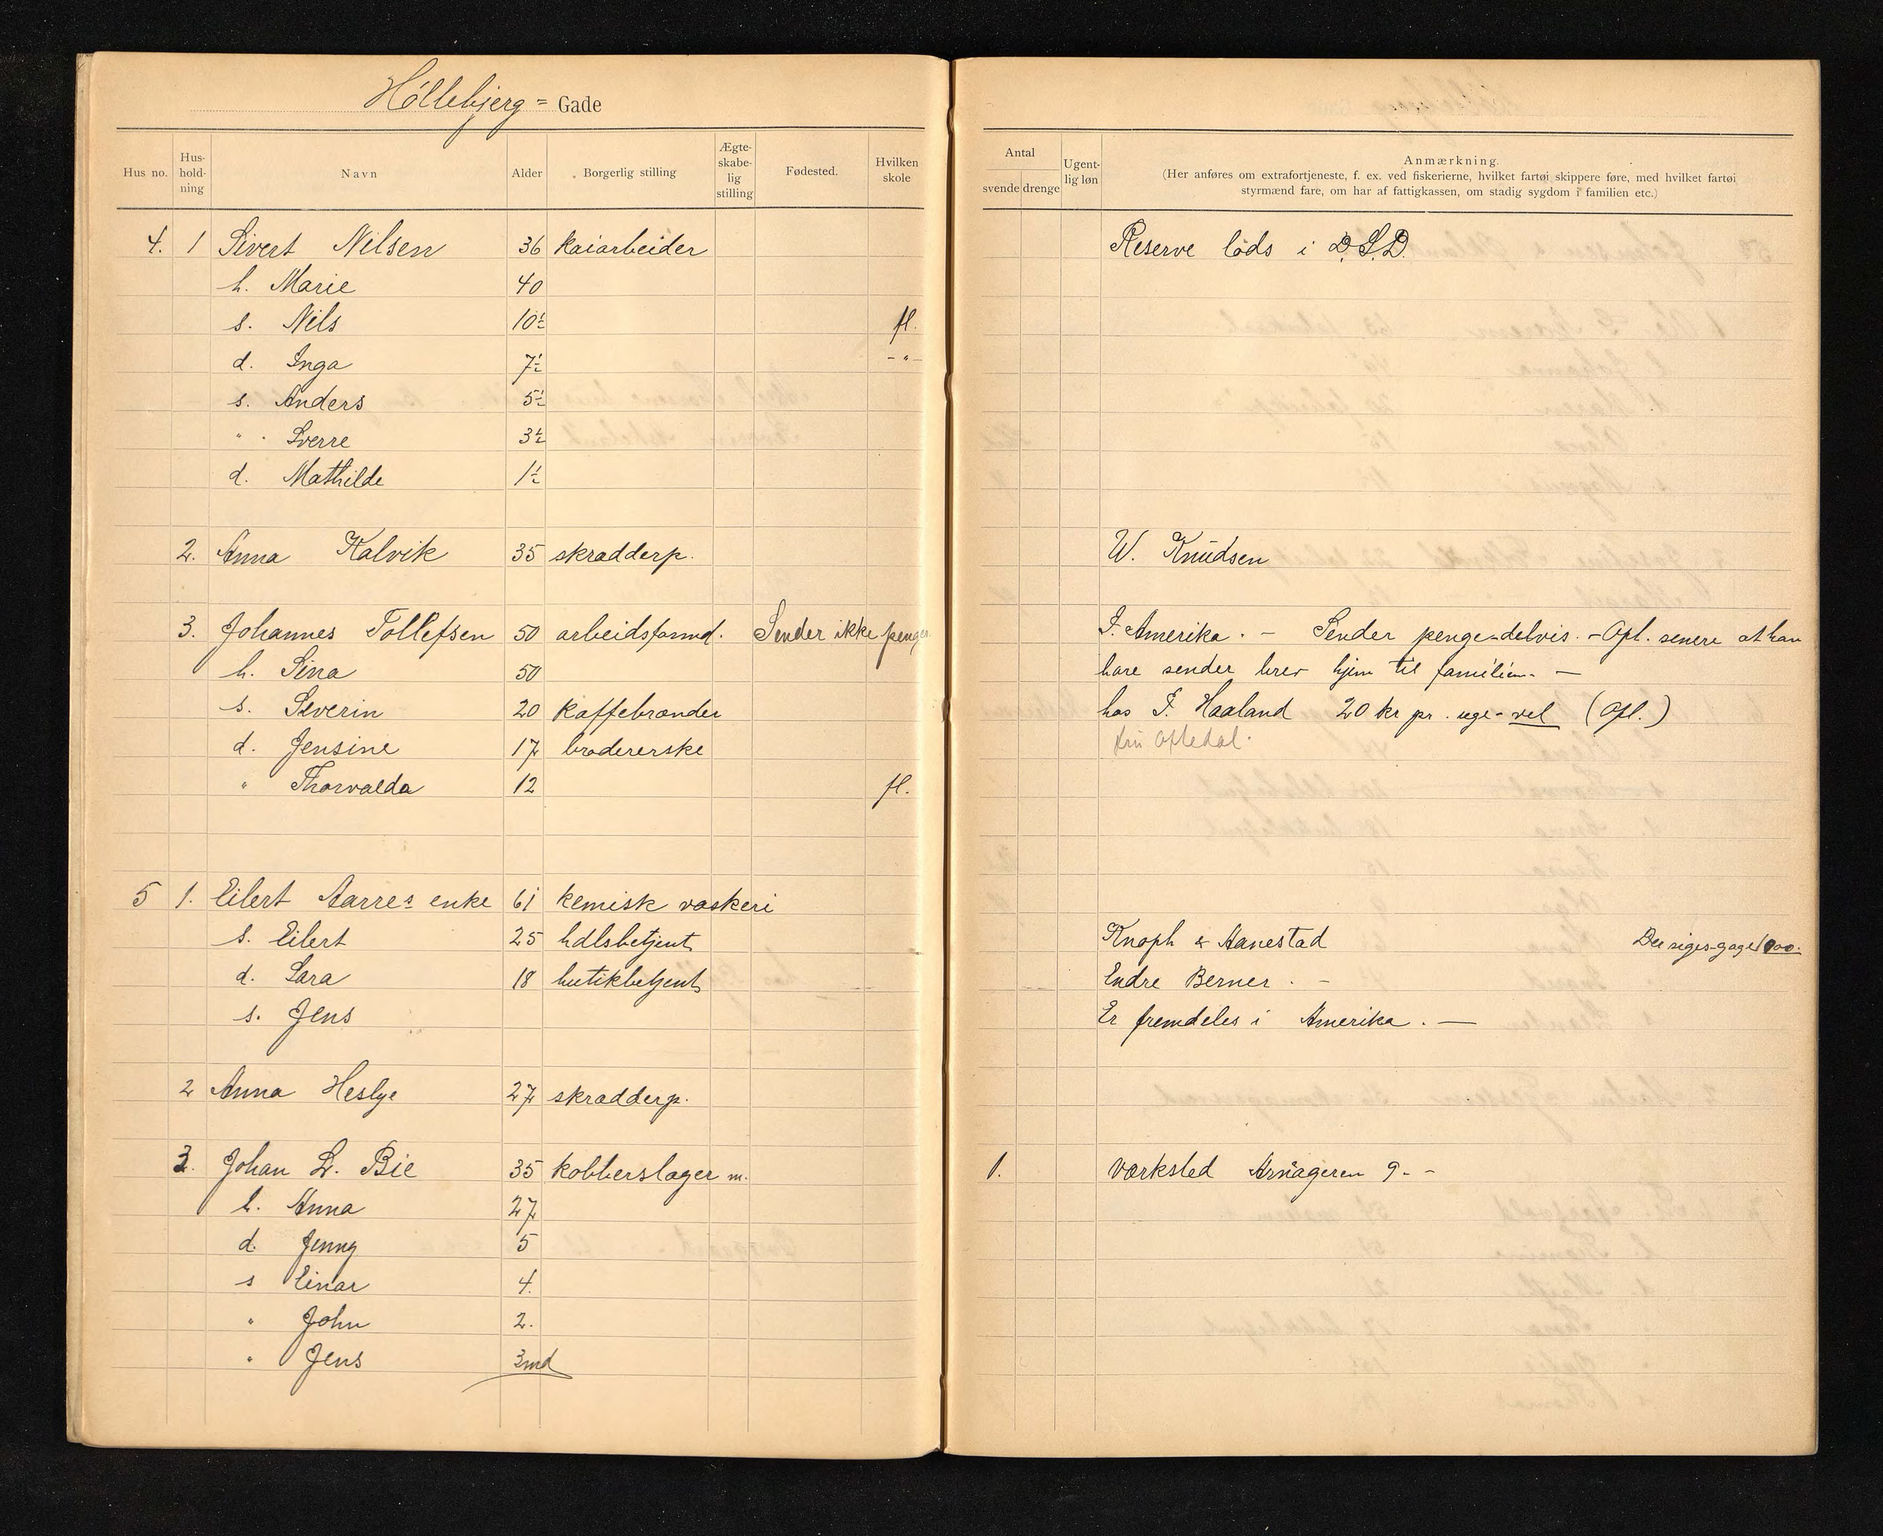 Høllebjerg= Gade
Hus no. Hus-hold-ning Navn Alder Borgerlig stilling Ægte-skabe-lig stilling Fødested. Hvilken skole
4. 1 Sivert Nilsen 36 kaiarbeider
h. Marie 40
s. Nils 10½ fl.
d. Inga 7½ -"-
s. Anders 5½
" Sverre 3½
d. Mathilde 1½
2. Anna Kalvik 35 skrædderp.
3. Johannes Tollefsen 50 arbeidsformd. Sender ikke penger
h. Sina 50
s. Severin 20 kaffebrænder
d. Jensine 17 brodererske
" Thorvalda 12 fl.
5 1. Eilert Aarres enke 61 kemisk vaskeri
s. Eilert 25 hdlsbetjent
d. Sara 18 butikbetjent
s. Jens
2 Anna Heslye 27 skrædderp.
3. Johan L. Bie 35 kobberslager m.
h. Anna 27
d. Jenny 5
s Einar 4.
" John 2.
" Jens 3md
Antal
svende drenge Ugent-lig løn Anmærkning.
(Her anføres om extrafortjeneste, f. ex. ved fiskerierne, hvilket fartøi skippere føre, med hvilket fartøi
styrmænd fare, om har af fattigkassen, om stadig sygdom i familien etc.)
Reserve lods i D.S.D.
W. Knudsen
I. Amerika. - Sender penge-delvis. - Opl. senere at han
bare sender brev hjem til familien. —
hos I. Haaland 20 kr pr. uge-vel (Opl.)
Oftedal.
Knoph & Aanestad Der siges-gage
Endre Berner. -
Er fremdeles i Amerika. —
1. værksted Arneageren 9. -